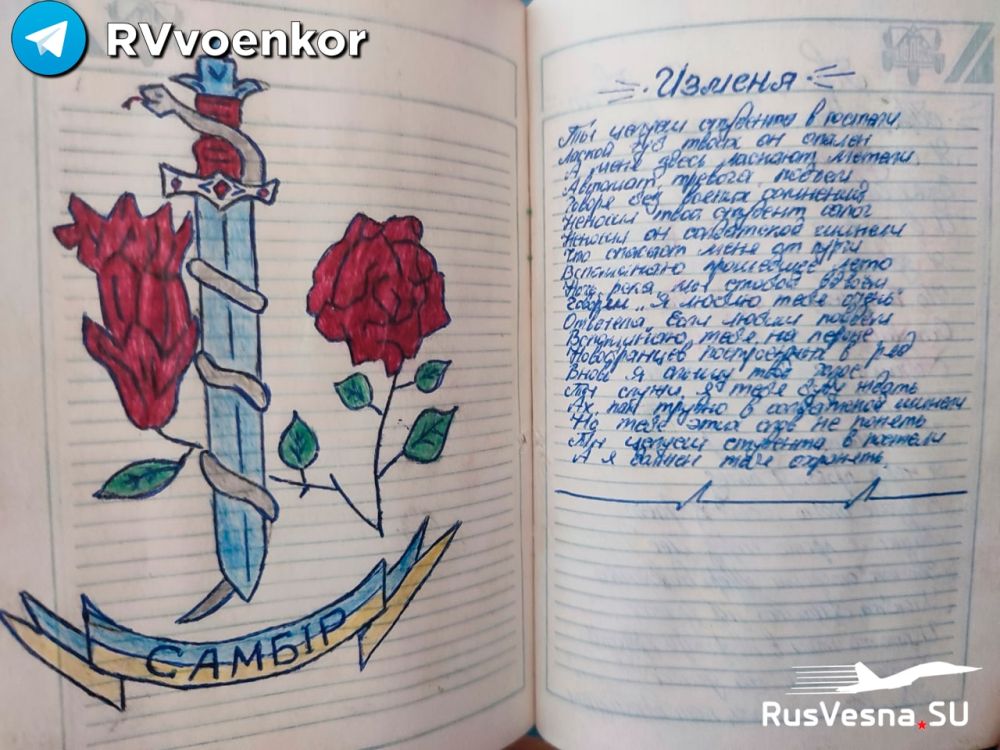 RVvoenkor
САМБІР
Изменя
Ты целуеш студента в постели,
Лаской губ твоих он опален
А меня здесь ласкают метели
Автомат, тревога подъем
Говоря без всяких сомнений
Неносил твой студент сапог
Неносил он солдатской шинели
Что спасает меня от пурги
Вспоминаю прошедшее лето
Ночь, река, мы стобой вдвоем
Говорил „Я люблю тебя очень"
Ответела, Если любиш
Вспоминаю тебя на
Новобранцев в ряд
Вновь я слышу твой голос
Ты служи, я тебя буду ждать
Ах, как трудно в солдатской шинели
Но тебе этих слов не понять
Ты целуеш студента в постели
А я должен тебя охранять.
RusVesna.SU